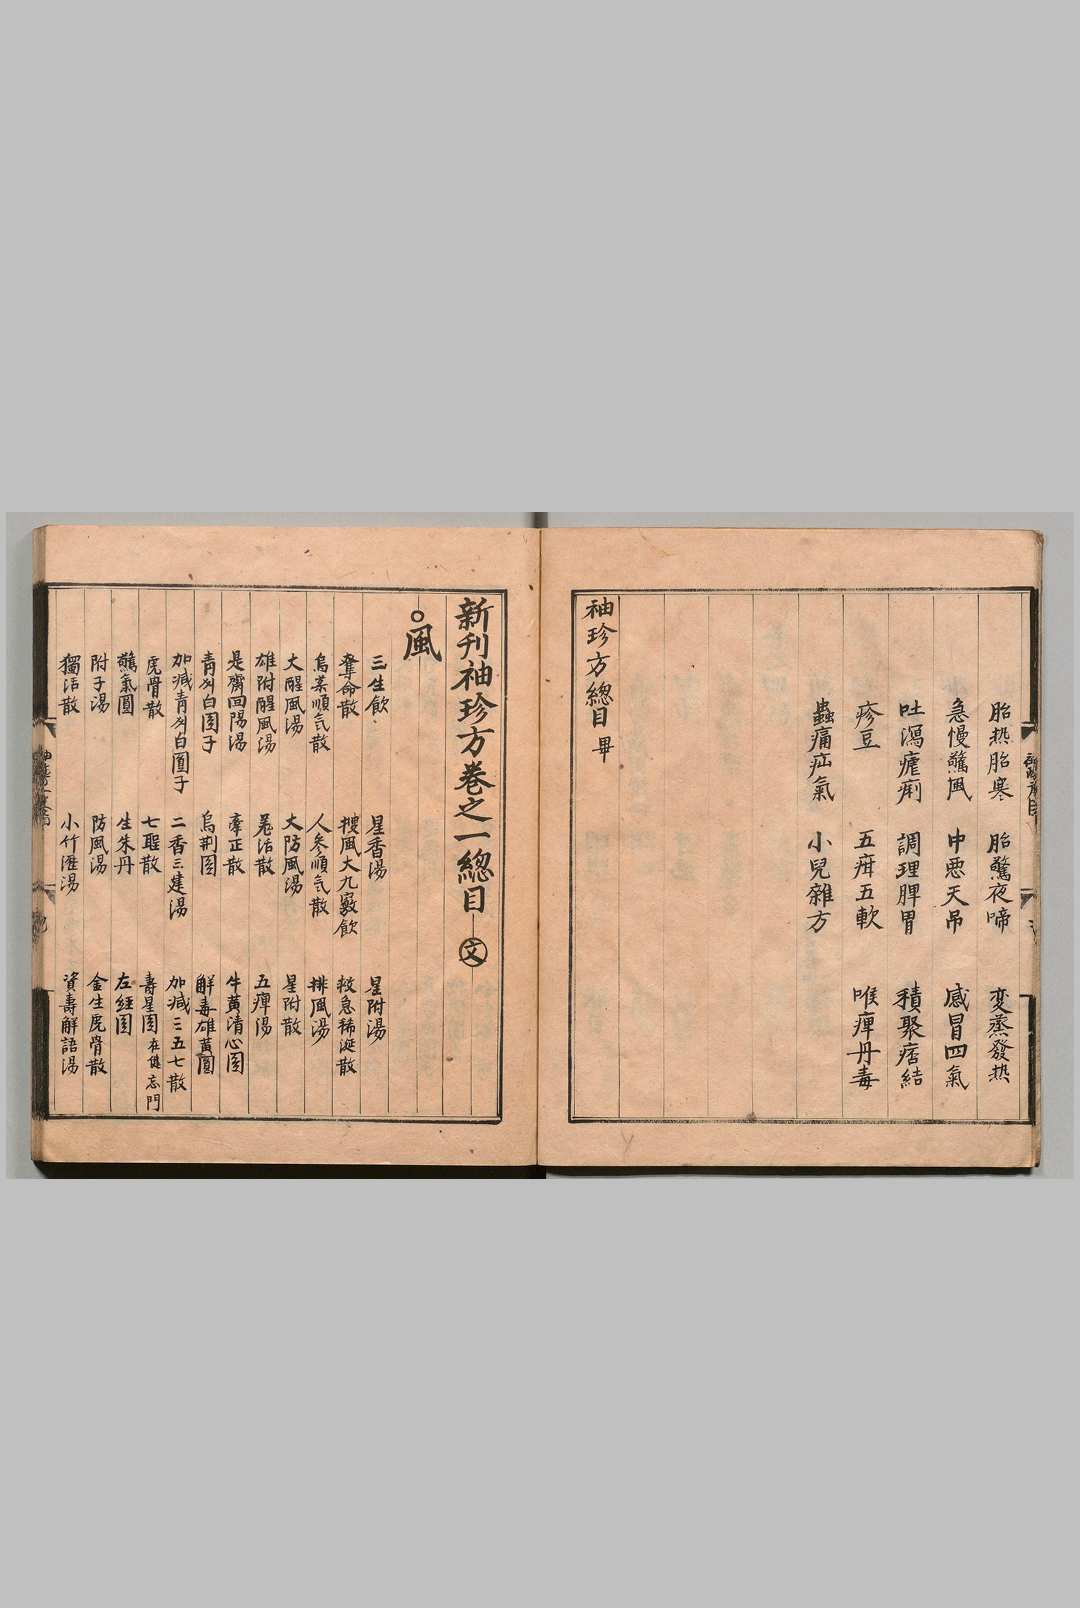 胎热胎寒　胎驚夜啼　変蒸發热
急慢驚風　中悪天吊　感冒四氣
吐瀉瘧痢　調理脾胃　積聚痞結
疹豆　五疳五軟　喉痺丹毒
蟲痛疝氣　小兒雜方
袖珍方總目畢
新刊袖珍方巻之一總目 文
○風
三生飲　星香湯　星附湯
奪命散　搜風大九竅飲　救急稀涎散
烏薬順気散　人参順気散　排風湯
大醒風湯　大防風湯　星附散
雄附醒風湯　羌活散　五痺湯
是齋回陽湯　牽正散　牛黄清心圎
青州白圎子　烏荊圎　解毒雄黄圓
加減青州白圓子　二香三建湯　加減三五七散
虎骨散　七聖散　壽星圎在健忘門
驚氣圓　生朱丹　左經圎
附子湯　防風湯　金生虎骨散
獨活散　小竹瀝湯　資壽解語湯